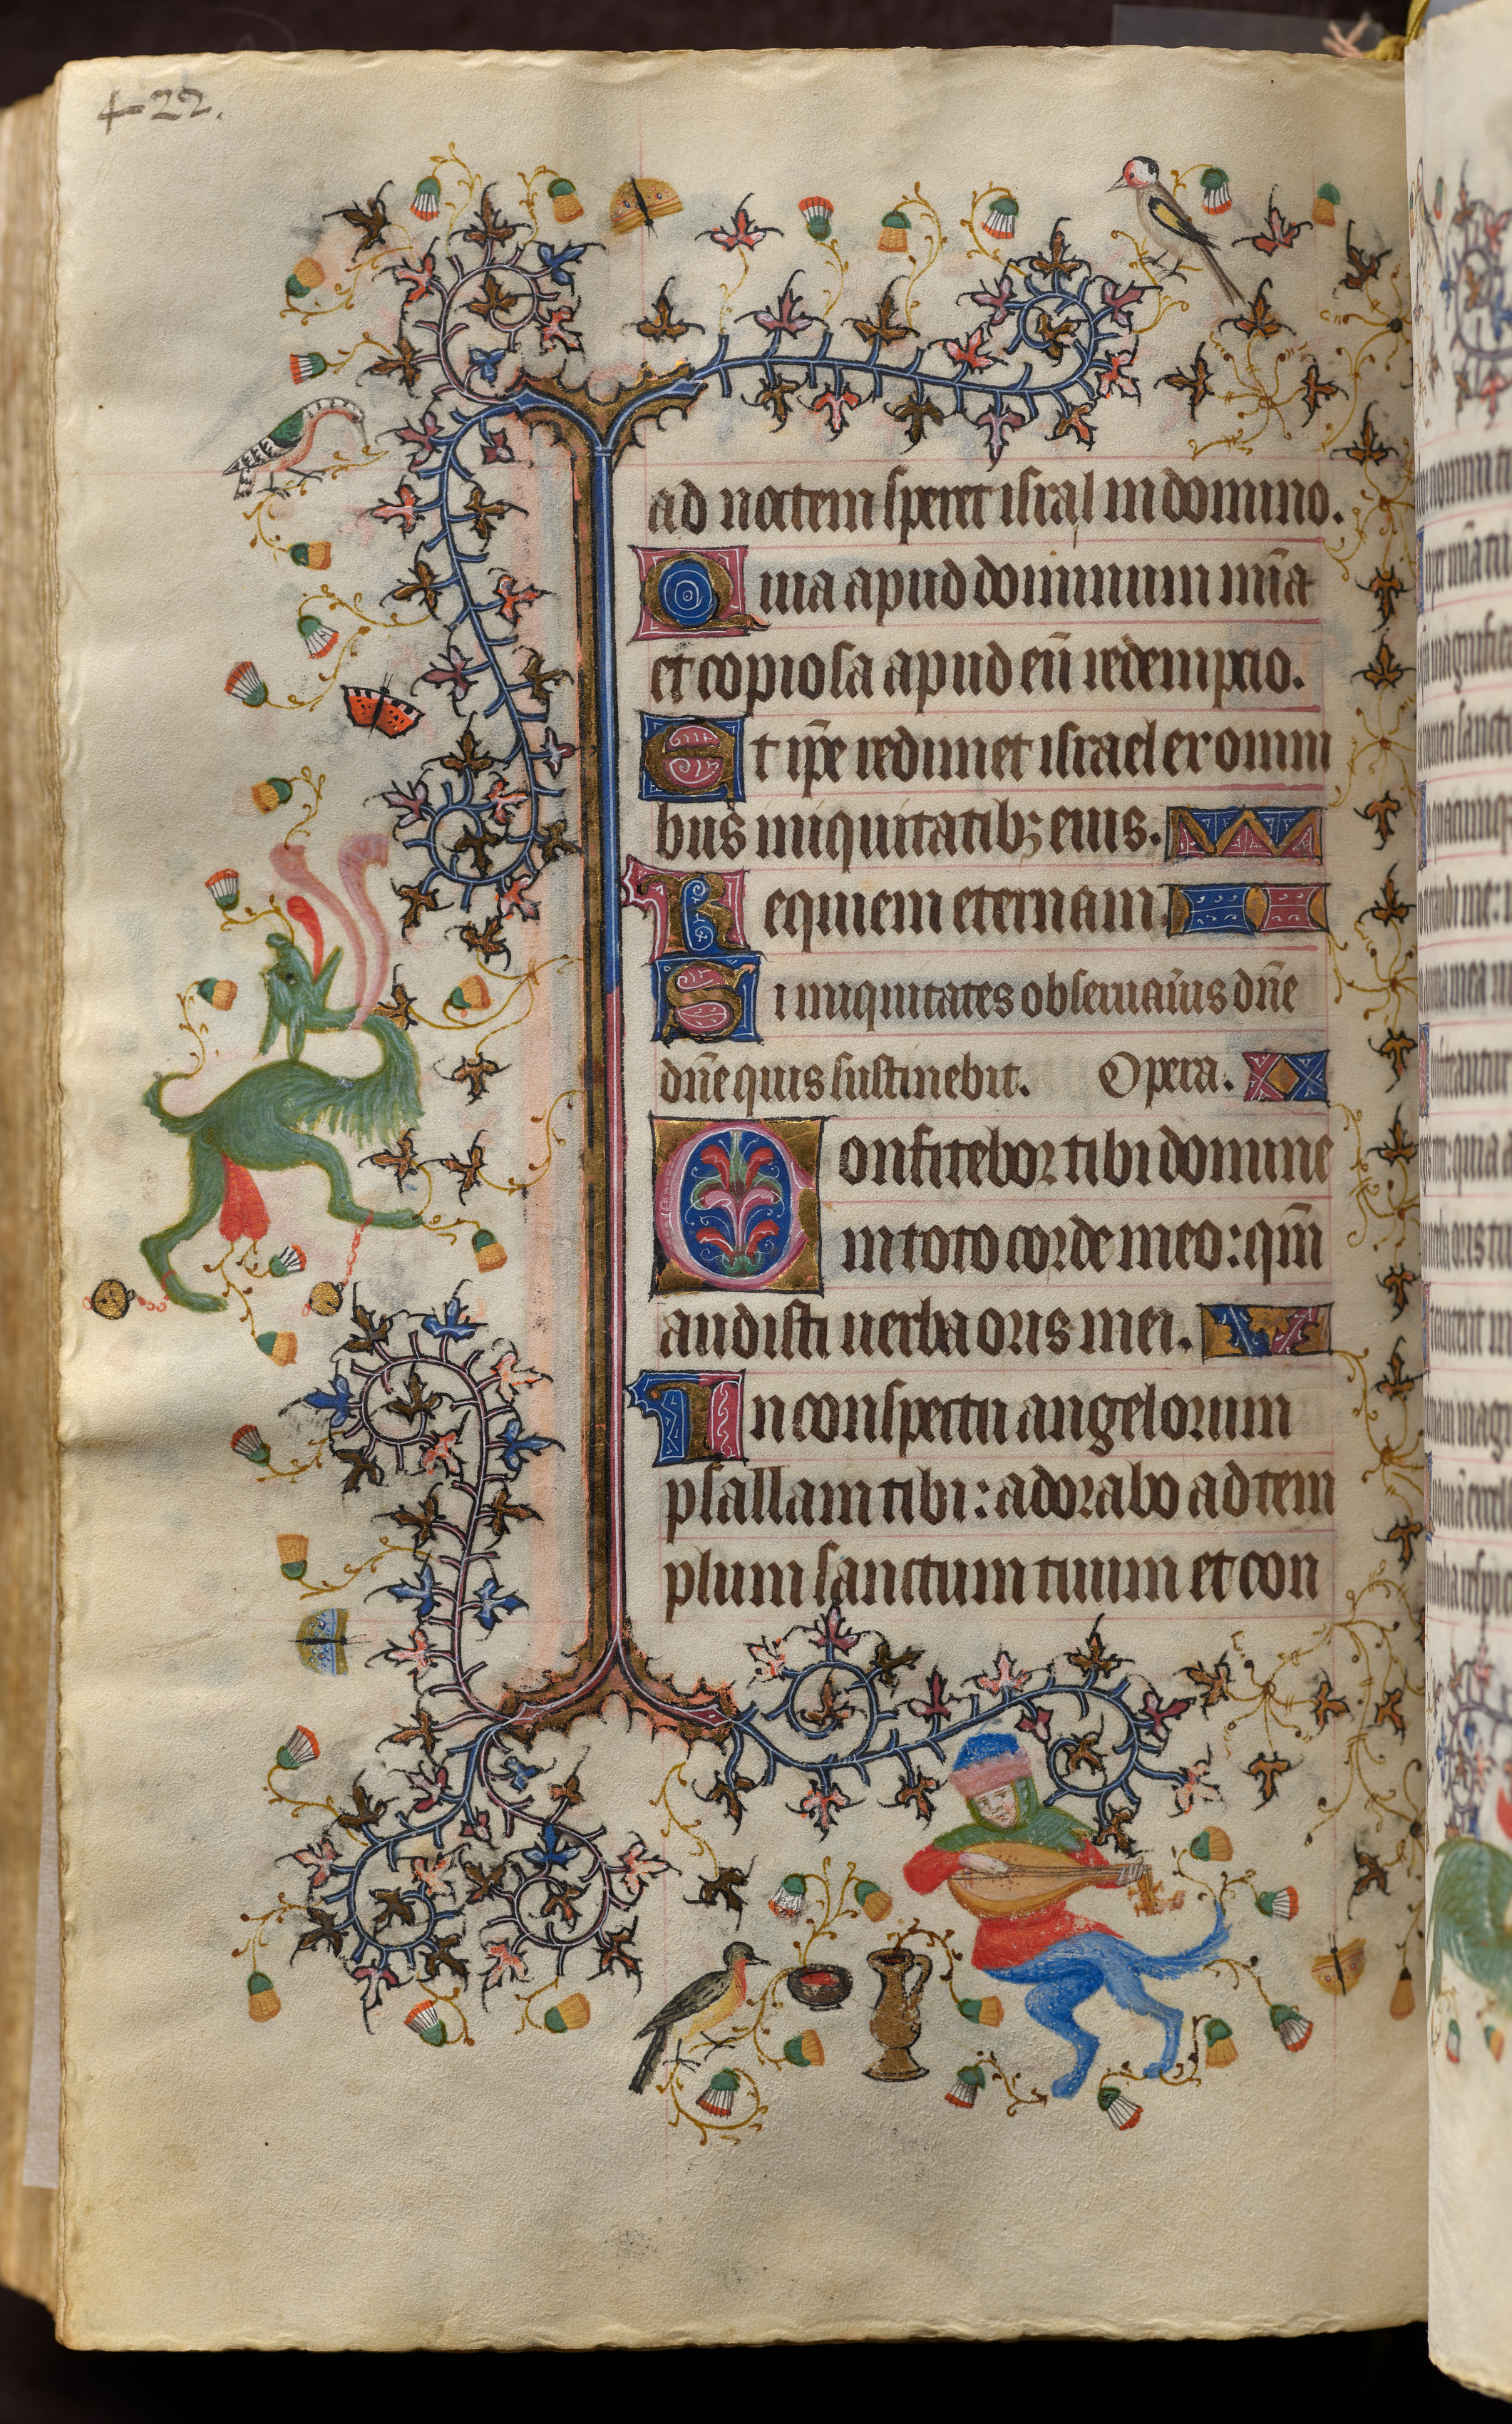 422.
ad noctem speret isral in domino.
Quia apud dominum mīa
et copiosa apud eū redempcio.
Et ip̄e redimet israel ex omni
bus iniquitatibꝫ eius.
Requiem eternam.
Si iniquitates obseruaūis dn̄e
dn̄e quis sustinebit. Opera.
Confitebor tibi domine
in toto corde meo: qm̄
audisti uerba oris mei.
In conspectu angelorum
psallam tibi: adorabo ad tem
plum sanctum tuum et con